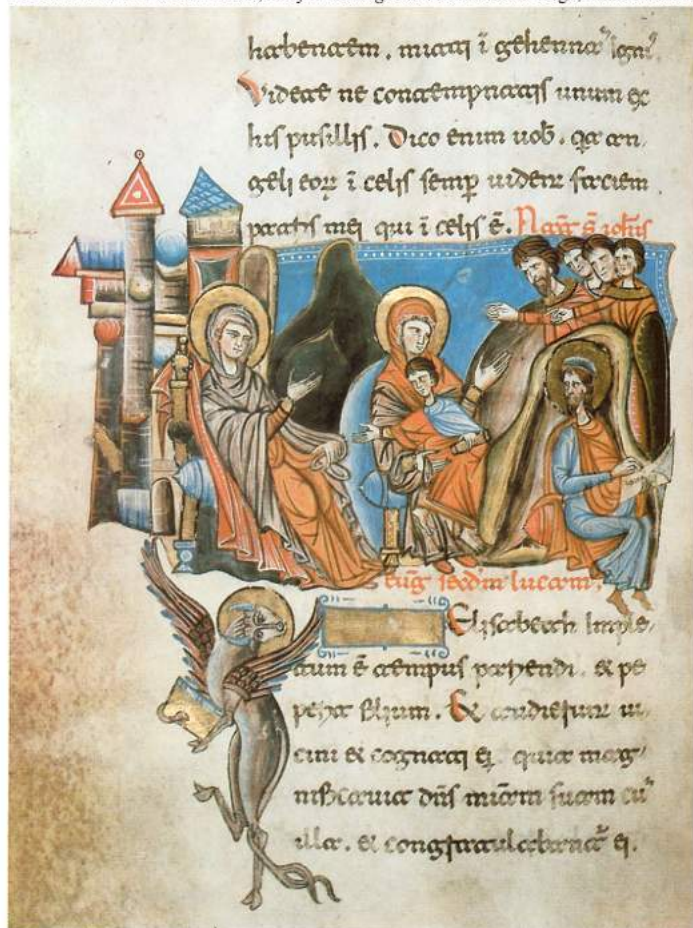 habentem. mitti ĩ gehennã igniˢ.
Videte ne contempnatis unum ex
his pusillis. Dico enim uob̃. qa an-
geli eoꝝ ĩ celis semp uident faciem
patris mei qui ĩ celis ẽ. ioh̃is
euḡ sc̃dm lucam.
Elisabeth imple-
tum ẽ tempus pariendi. et pe
perit filium. Et audierunt ui-
cini et cognati ei. quia mag-
nificauit dñs miam suam cũ
illa. et congratulabantˀ ei.